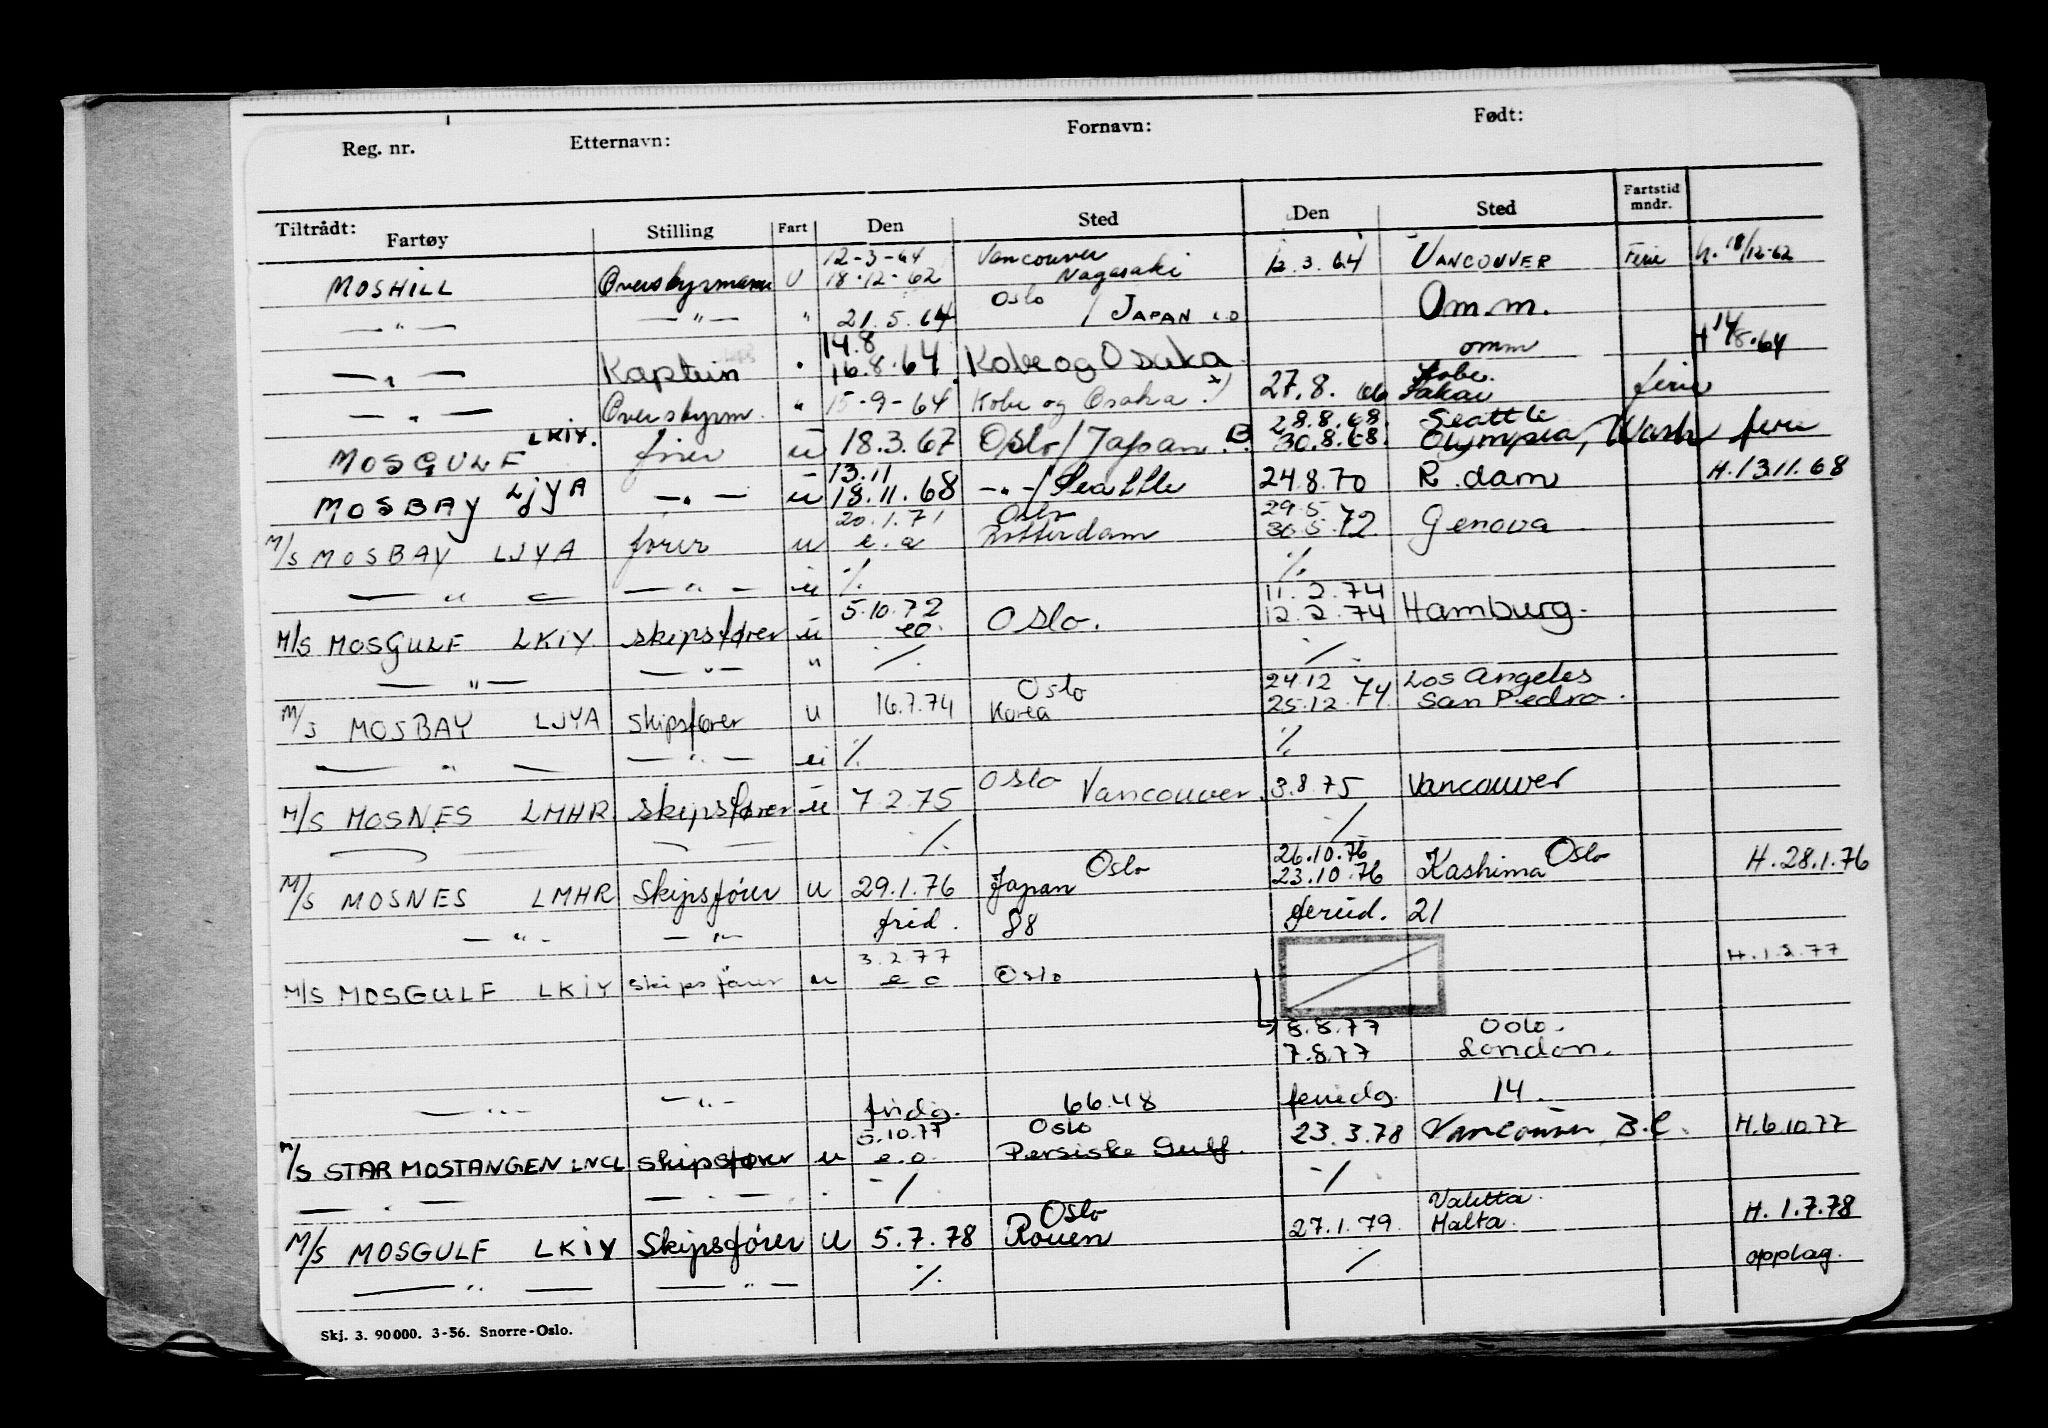 Reg. nr. Etternavn: Fornavn: Født:
Tiltrådt: Fartøy Stilling Fart Den Sted Den Sted Fartstid mndr.
12-3-64 Vancouver
MOSHILL Overstyrmann U 18-12-62 Nagasaki 12.3.64 VANCOUVER Ferie h. 18/12-62
— " — — " — " 21.5.64 Oslo / JAPAN Om.m.
14.8
— " — Kaptein " 16.8.64 Kobe og Osaka omm H 14/8.64
— " — Overstyrm. " 15-9-64 Kobe og Osaka 27.8. Kobe. Sakai ferie
28.8.68. Seattle
MOSGULF LKIY. fører u 18.3.67 Oslo/Japan 30.8.68. Olympia, Wash ferie
13.11
MOSBAY LJYA — " — u 18.11.68 — " —/Seattle 24.8.70 R.dam H.13.11.68
20.1.71 Oslo 29.5
M/S MOSBAY LJYA fører u e.a Rotterdam 30.5.72. Genova
— " — — " — u % %
5.10.72 11.2.74
M/S MOSGULF LKIY. skipsfører u ea. Oslo. 12.2.74 Hamburg.
— " — — " — " % %
Oslo 24.12 Los Angeles
M/S MOSBAY LJYA skipsfører u 16.7.74 Korea 25.12.74. San Pedro.
— " — — " — u % %
M/S MOSNES LMHR. skipsfører u 7.2.75 Oslo Vancouver. 3.8.75 Vancouver
% %
26.10.76 Oslo
M/S MOSNES LMHR Skipsfører u 29.1.76 Japan Oslo 23.10.76 Kashima H.28.1.76
— " — — " — frid. 88 ferid. 21
3.2.77
M/S MOSGULF LKIY skipsfører u e a Oslo H.1.2.77
8.8.77 Oslo.
7.8.77 London.
— " — — " — fridg. 66.48 feriedg 14.
5.10.77 Oslo
M/S STAR MOSTANGEN LNCL skipsfører u e.a. Persiske Gulf. 23.3.78 Vancouver B.C. H.6.10.77
— " — — " — " % %
Oslo Valetta.
M/S MOSGULF LKIY Skipsfører U 5.7.78 Rouen 27.1.79. Malta. H. 1.7.78
— " — — " — % % opplag.
Skj. 3. 90000. 3-56. Snorre-Oslo.